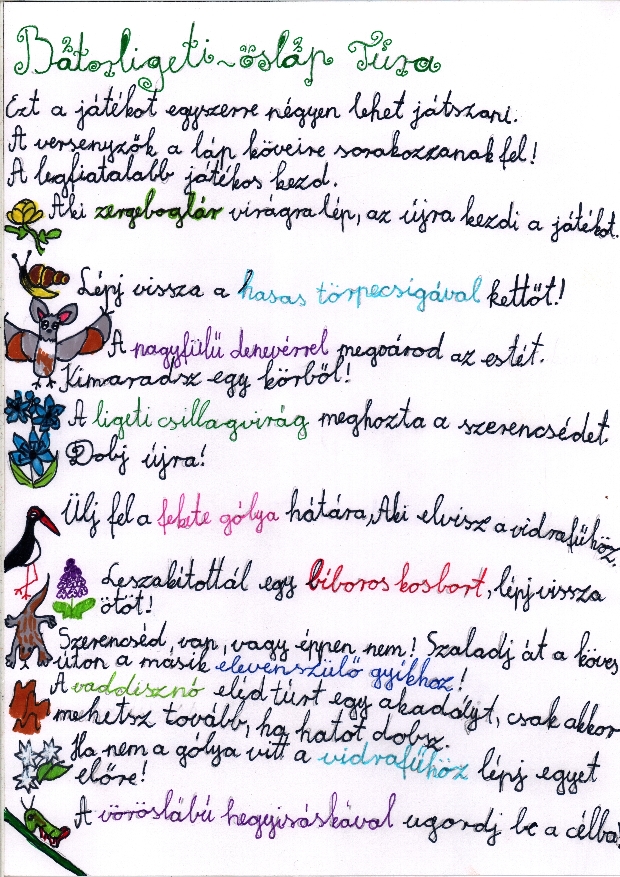 Bátorligeti-ősláp Túra
Ezt a játékot egyszerre négyen lehet játszani.
A versenyzők a láp köveire sorakozzanak fel!
A legfiatalabb játékos kezd.
Aki zergeboglár virágra lép, az újra kezdi a játékot.
Lépj vissza a hasas törpecsigával kettőt!
A nagyfülű denevérrel megvárod az estét.
Kimaradsz egy körből!
A ligeti csillagvirág meghozta a szerencsédet.
Dobj újra!
Ülj fel a fekete gólya hátára, Aki elvisz a vidrafűhöz.
Leszakítottál egy bíboros kosbort, lépj vissza
ötöt!
Szerencséd van, vagy éppen nem! Szaladj át a köves
úton a másik elevenszülő gyíkhoz!
A vaddisznó eléd túrt egy akadályt, csak akkor
mehetsz tovább, ha hatot dobsz.
Ha nem a gólya vitt a vidrafűhöz lépj egyet
előre!
A vöröslábú hegyisáskával ugordj be a célba!